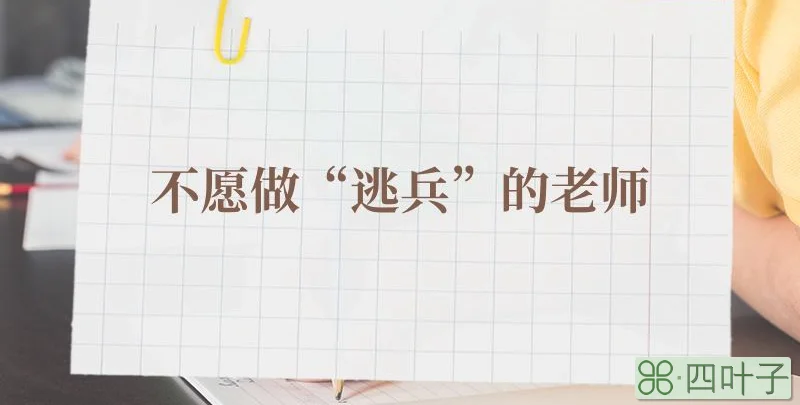 不愿做“逃兵”的老师
四叶子